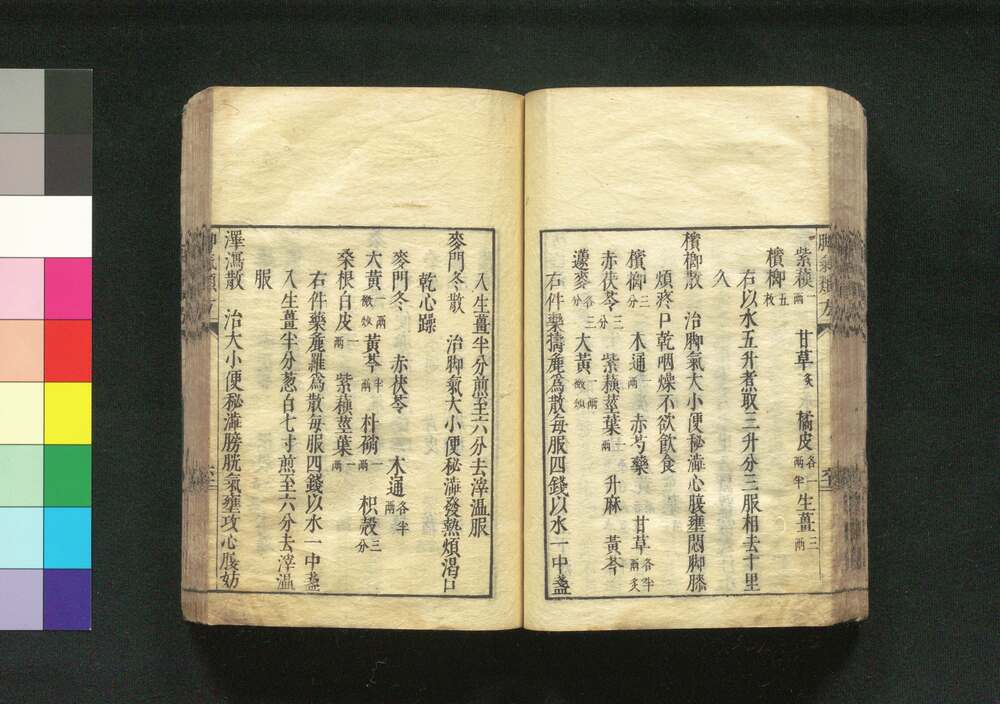 紫蘓二兩 甘草炙 橘皮各一兩半 生薑三兩
檳榔五枚
右以水五升煮取三升分三服相去十里
久
檳榔散 治脚氣大小便秘澁心腹壅悶脚膝
煩疼口乾咽燥不欲飲食
檳榔三分 木通一兩 赤芍藥 甘草各半兩炙
赤茯苓三分 紫蘓莖葉一兩 升麻 黃芩
蘧麥各三分 大黃一兩微炒
右件藥擣麁為散每服四錢以水一中盞
入生薑半分煎至六分去滓溫服
麥門冬散 治脚氣大小便秘澁發熱煩渴口
乾心躁
麥門冬 赤茯苓 木通各半兩
大黃一兩微炒 黃芩半兩 朴硝一兩 枳殼三分
桑根白皮一兩 紫蘓莖葉一兩
右件藥麁羅為散每服四錢以水一中盞
入生薑半分葱白七寸煎至六分去滓溫
服
澤瀉散 治大小便秘澁膀胱氣壅攻心腹妨